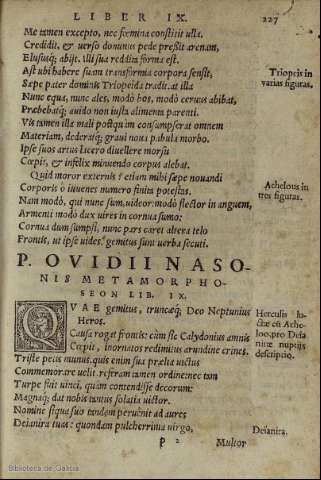 LIBER IX. 227
Me tamen excepto, nec fœmina constitit ulla.
Credidit, & uerso dominus pede pressit arenam,
Elususq; abijt. illi sua reddita forma est.
Ast ubi habere suam transformia corpora sensit,
Sæpe pater dominis Triopeida tradit. at illa
Nunc equa, nunc ales, modò bos, modò ceruus abibat,
Præbebatq; auido non iusta alimenta parenti.
Vis tamen illa mali postquam consumpserat omnem
Materiam, dederatq; graui noua pabula morbo.
Ipse suos artus lacero diuellere morsu
Cœpit, & infelix minuendo corpus alebat.
Quid moror externis? etiam mihi sæpe nouandi
Corporis ô iuuenes numero finita potestas.
Nam modò, qui nunc sum, uideor: modò flector in anguem,
Armenti modò dux uires in cornua sumo:
Cornua dum sumpsi, nunc pars caret altera telo
Frontis, ut ipse uides. gemitus sunt uerba secuti.
Triopeis in
varias figuras.
Achelous in
tres figuras.
P. OVIDII NASO-
NIS METAMORPHO-
SEON LIB. IX.
QVAE gemitus, truncæq; Deo Neptunius
Heros.
Causa roget frontis: cùm sic Calydonius amnis
Cœpit, inornatos redimitus arundine crines.
Triste petis munus. quis enim sua prælia uictus
Commemorare uelit? referam tamen ordine: nec tam
Turpe fuit uinci, quàm contendisse decorum:
Magnaq; dat nobis tantus solatia uictor.
Nomine siqua suo tandem peruenit ad aures
Deianira tuas: quondam pulcherrima uirgo,
Herculis lu-
ctæ cũ Ache-
loo, pro Deia
niræ nuptijs
descriptio.
Deianira.
p 2 Multor
Biblioteca de Galicia